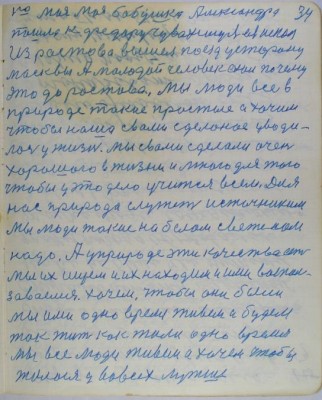 34
моя моя бабушка Александра
пошла к
Из ростова вышел поезд усторону
москвы А молодой человек они почему
это до ростова, Мы люди все в
природе такие простые а хочим
чтобы наша свами сделоное уводи-
лось у жизнь. мы свами сделали очен
хорошого в жизни и много для того
чтобы у это дело учится всем. Для
нас природа служет источником
Мы люди такие на белом свете нам
надо. А уприроде эти качества есть
мы их ищем и их находим и ими
зываемся. хочем, чтобы они были
мы ими одно время живем и будем
так жит как жили одно время
Мы все люди живем а хочем чтобы
у вовсех лучше